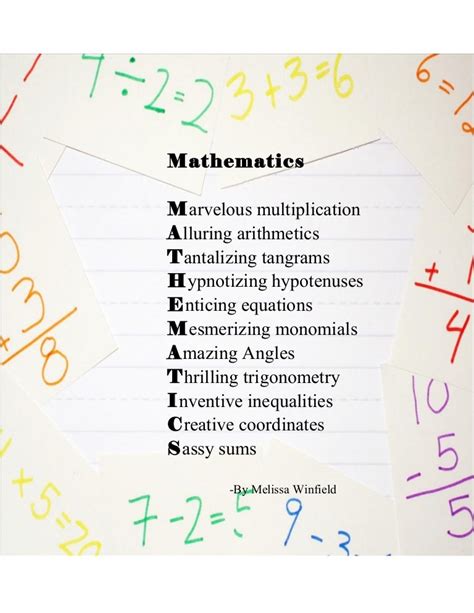 4÷2=2
3+3=6
6=12
Mathematics
Marvelous multiplication
Alluring arithmetics
Tantalizing tangrams
Hypnotizing hypotenuses
Enticing equations
Mesmerizing monomials
Amazing Angles
Thrilling trigonometry
Inventive inequalities
Creative coordinates
Sassy sums
-By Melissa Winfield
4
10
- 5
5
+5=20
7-2=5
9-3